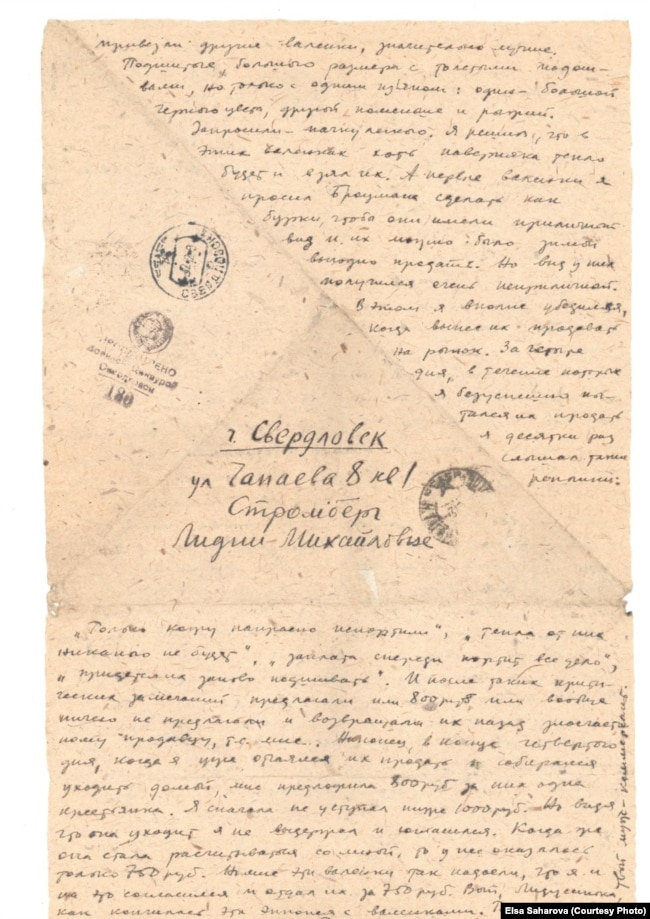 привезли другие валенки, значительно лучше.
Подшитые, большого размера с толстыми подош-
вами, но только с одним изъяном: один - большой
черного цвета, другой поменьше и рыжий.
Запросили - пачку легкого. Я решил, что в
этих валенках хоть наверняка тепло
будет и взял их. А первые валенки я
просил Броумана сделать как
бурки, чтобы они имели приличный
вид и их можно было зимой
выгодно продать. Но вид у них
получился очень неприличной.
В этом я вполне убедился,
когда вынес их продавать
на рынок. За четыре
дня, в течение которых
я безуспешно пы-
тался их продать
я десятки раз
слышал такие
реплики:
СВЕРДЛОВСК
ПРОСМОТРЕНО
Военной Цензурой
Свердловск
180
г. Свердловск
ул Чапаева 8 кв 1
Стромберг
Лидии Михайловне
„Только кожу напрасно испортили", „тепла от них
никакого не будет", „заплата спереди портит все дело",
„придется их заново подшивать". И после таких крити-
ческих замечаний предлагали или 800 руб или вообще
ничего не предлагали и возвращали их назад злосчаст
ному продавцу, т.е. мне. Наконец, в конце четвертого
дня, когда я уже отчаялся их продать и собирался
уходить домой, мне предложила 800 руб за них одна
крестьянка. Я сначала не уступал ниже 1000 руб. Но видя
что она уходит я не выдержал и согласился. Когда же
она стала расчитываться со мной, то у нее оказалось
только 750 руб. Но мне эти валенки так надоели, что я и
на это согласился и отдал их за 750 руб. Вот, Лидусинька,
как кончилась эта эпопея с валенками.
Твой муж - коммерсант.
Elsa Saharova (Courtesy Photo)